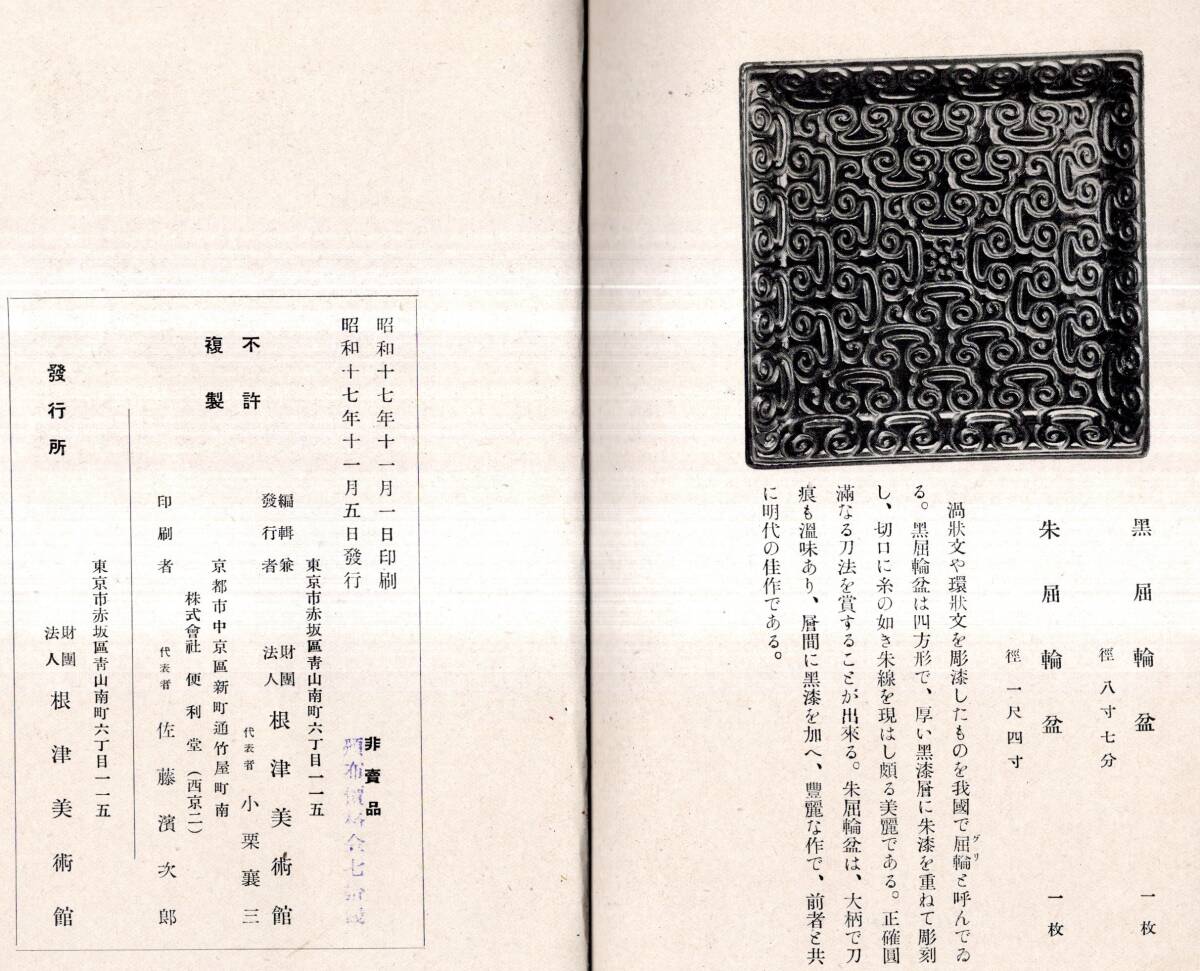 黑屈輪盆 一枚
徑 八寸七分
朱屈輪盆 一枚
徑 一尺四寸
渦狀文や環狀文を彫漆したものを我國で屈輪と呼んでゐ
グリ
る。黑屈輪盆は四方形で、厚い黑漆層に朱漆を重ねて彫刻
し、切口に糸の如き朱線を現はし頗る美麗である。正確圓
滿なる刀法を賞することが出來る。朱屈輪盆は、大柄で刀
痕も溫味あり、層間に黑漆を加へ、豐麗な作で、前者と共
に明代の佳作である。
昭和十七年十一月一日印刷
昭和十七年十一月五日發行
非賣品
頒布價格金七拾錢
東京市赤坂區靑山南町六丁目一一五
編輯兼
發行者
財團
法人
根津美術館
代表者 小栗襄三
不許
複製
京都市中京區新町通竹屋町南
株式會社 便利堂(西京二)
印刷者
代表者 佐藤濱次郎
東京市赤坂區靑山南町六丁目一一五
發行所
財團
法人
根津美術館